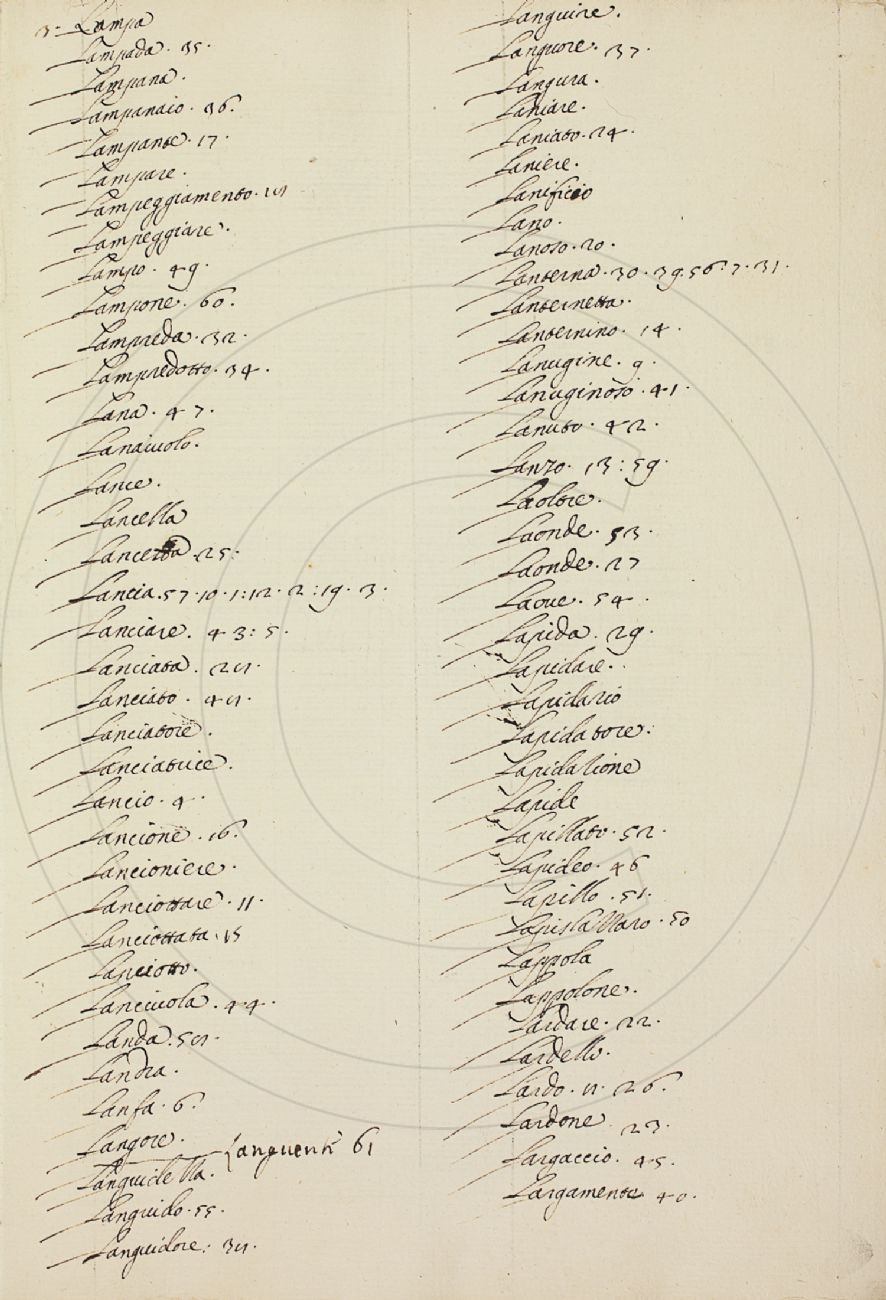 3. Lampa
Lampada. 35.
Lampana.
Lampanaio. 36.
Lampante. 17.
Lampare.
Lampeggiamento.
Lampeggiare.
Lampo. 49.
Lampone. 60.
Lampreda. 32.
Lampredotto. 34.
Lana. 47.
Lanaiuolo.
Lance.
Lancella
25.
Lancia. 57. 10. 1:12. 2:19. 3.
Lanciare. 43: 5.
Lanciata.
Lanciato.
Lanciatore.
Lanciatrice.
Lancio. 4.
Lancione. 16.
Lancioniere.
Lanciottare. 11.
Lanciottata. 15
Lanciotto.
Lanciuola. 44.
Landa.
Landra.
Lanfa. 6.
Langore.
Languenti 61
Languidella.
Languido. 55.
Languidore:
Languire.
Languore. 37.
Langura.
Laniare.
Laniato. 24.
Laniere.
Lanificio
Lano.
Lanoso. 20.
Lanterna. 30. 39. 56. 7. 31.
Lanternetta.
Lanternino. 14.
Lanugine. 9.
Lanuginoso. 41.
Lanuto. 42.
Lanzo. 13: 59.
Laoltre.
Laonde. 53.
Laonde. 27
Laoue. 54.
Lapida. 29.
Lapidare.
Lapidario
Lapidatore.
Lapidazione
Lapide
Lapillato. 52.
Lapideo. 46
Lapillo. 51.
Lapislazzaro. 50
Lappola
Lappolone.
Lardare. 22.
Lardello.
Lardo. 26.
Lardone. 23.
Largaccio. 45.
Largamente 40.